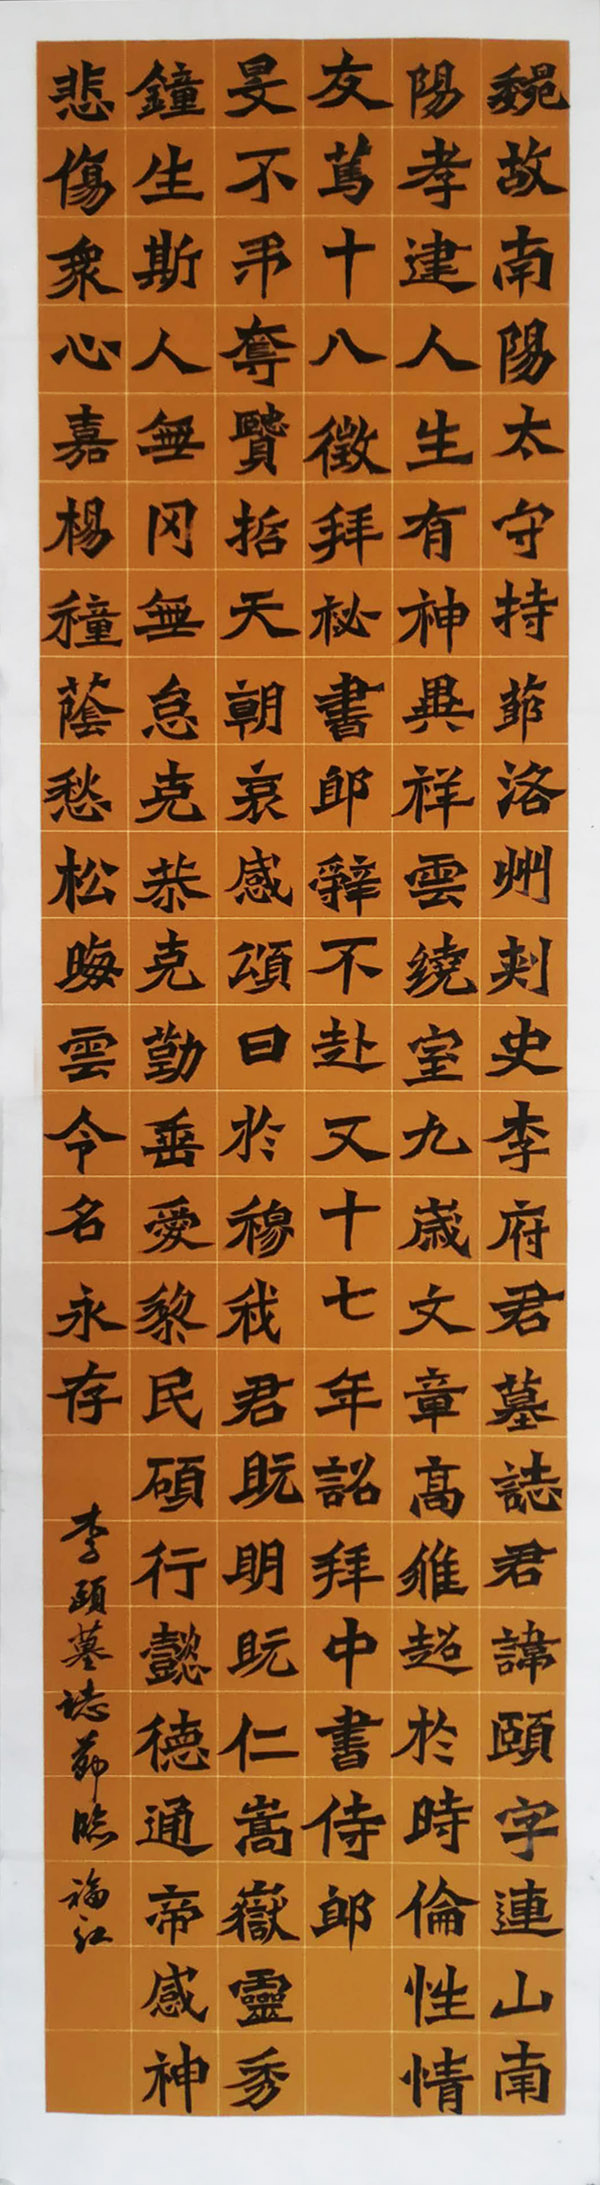 魏故南陽太守持節洛州刺史李府君墓誌君諱頤字連山南
陽孝建人生有神異祥雲繞室九歲文章高雅超於時倫性情
友篤十八徵拜祕書郎辭不赴又十七年詔拜中書侍郎
旻不弔奪賢哲天朝哀感頌曰於穆我君既明既仁嵩嶽靈秀
鐘生斯人無冈無怠克恭克勤垂愛黎民碩行懿德通帝感神
悲傷衆心嘉楊穜蔭愁松晦雲令名永存
李頤墓誌節臨 福江